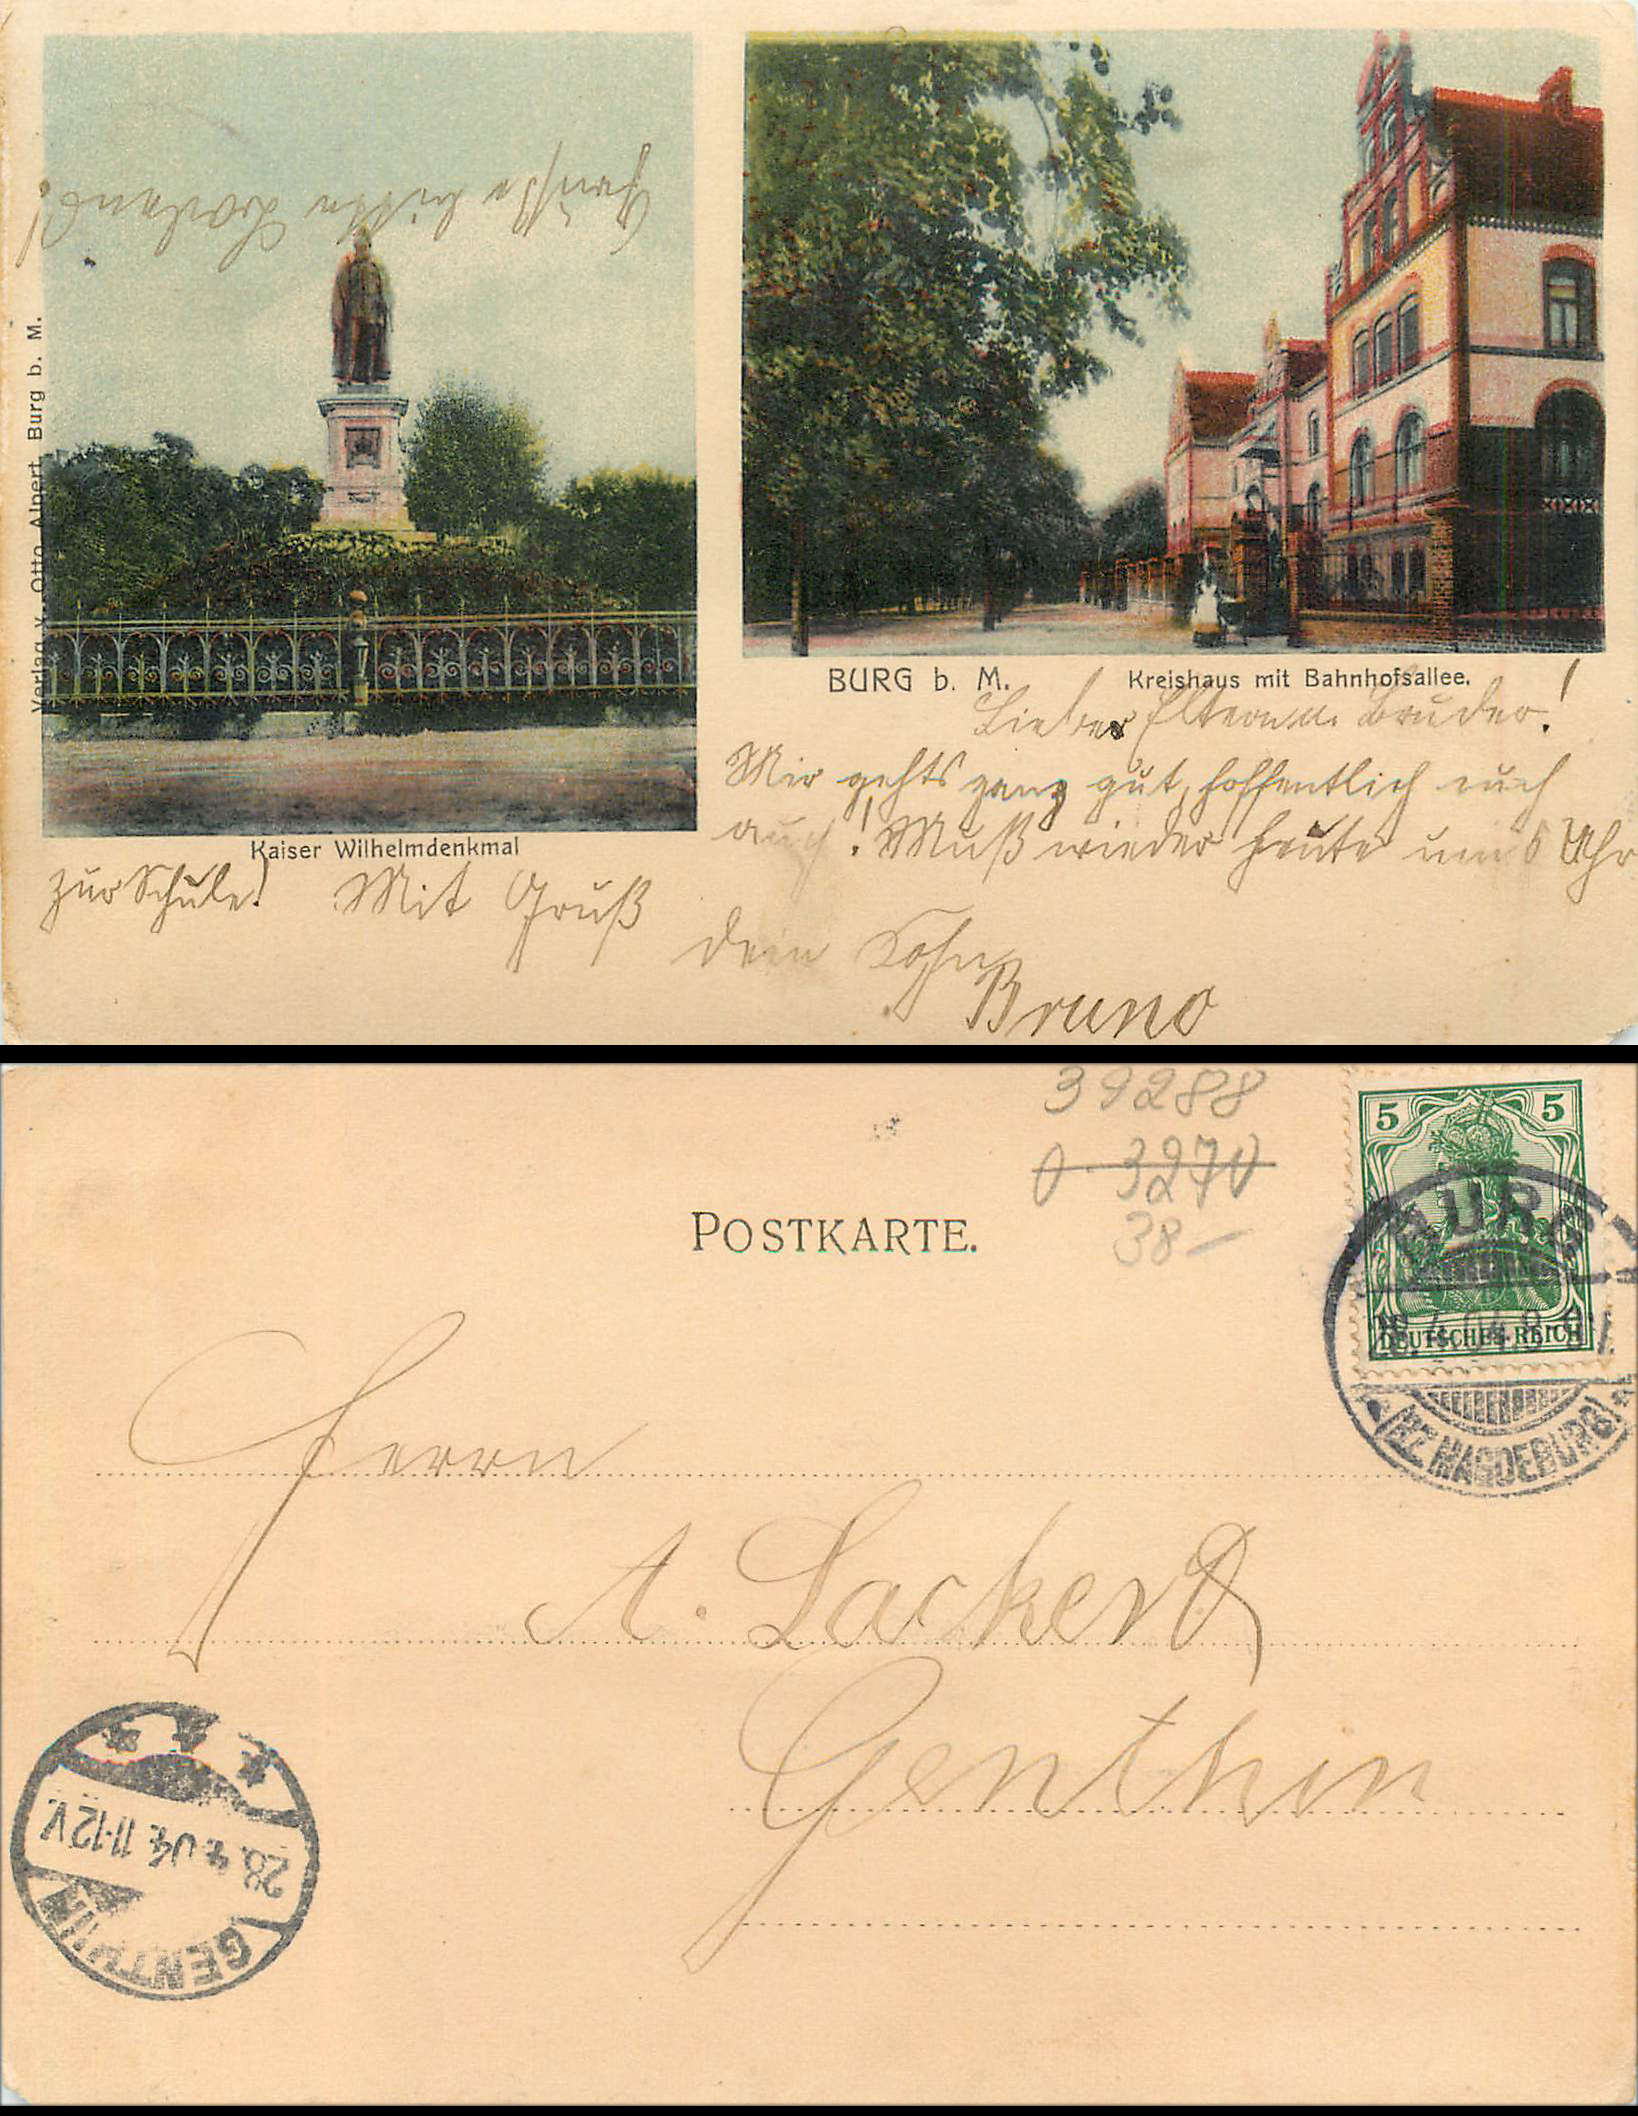 Grüße bitte
Verlag v. Otto Alpert, Burg b. M.
Kaiser Wilhelmdenkmal
BURG b. M. Kreishaus mit Bahnhofsallee.
Liebe Eltern u. Bruder!
Mir gehts ganz gut, hoffentlich euch
auch! Muß wieder heute um Uhr
zur Schule! Mit Gruß
dein Sohn
Bruno
39288
0 3270
38 –
POSTKARTE.
5 5
DEUTSCHES REICH
BURG
28.4.04. 8-9V.
(BZ. MAGDEBURG)
Herrn
A. Lackerd
Genthin
GENTHIN
28.4.04. 11-12V.